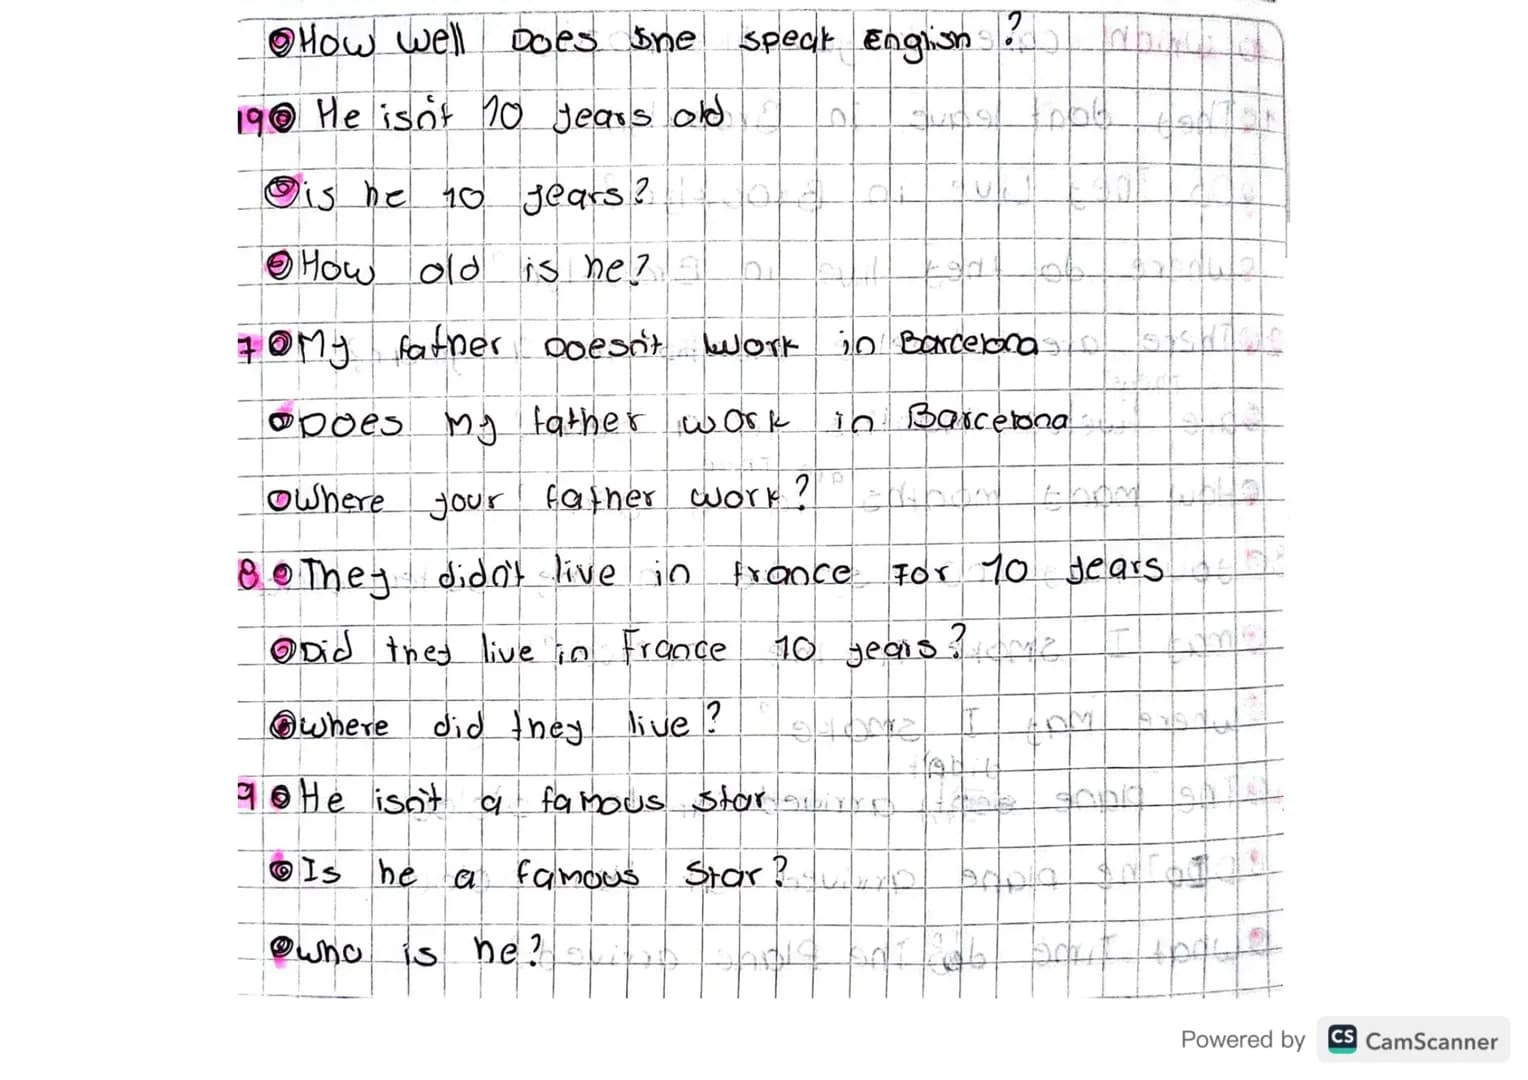 How well Does she speak English ?
19 He isn't 10 years old
is he 10 years?
How old is he?
7 My father Doesn't work in Barcelona
Does my father work in Barcelona
Where your father work?
8 They didn't live in france For 10 years
Did they live in France 10 years?
where did they live?
9 He isn't a famous star
Is he a famous Star?
who is he?
Powered by CS CamScanner